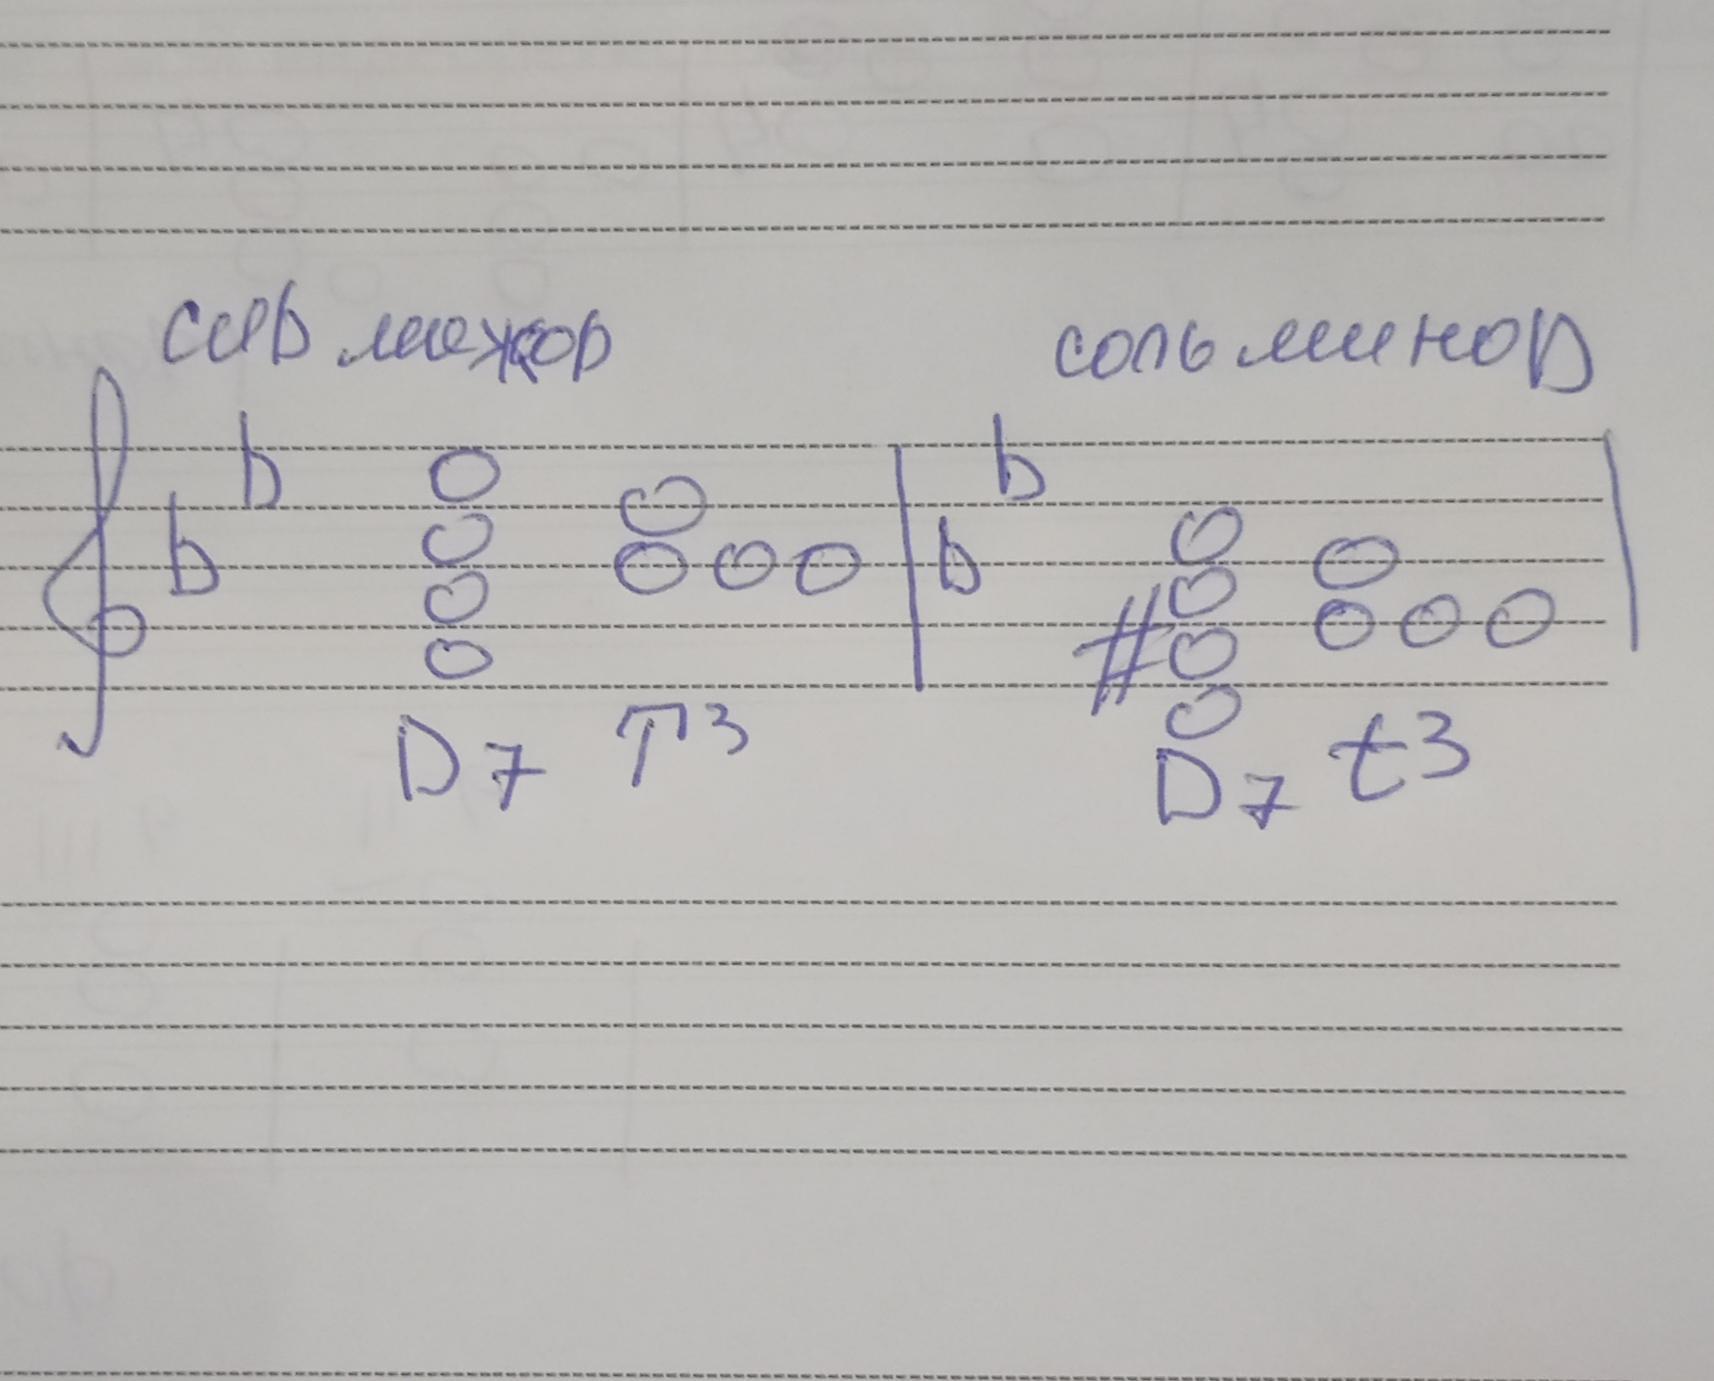 сиb мажор
сольминор
b b # b b
D7 T3 D7 t3